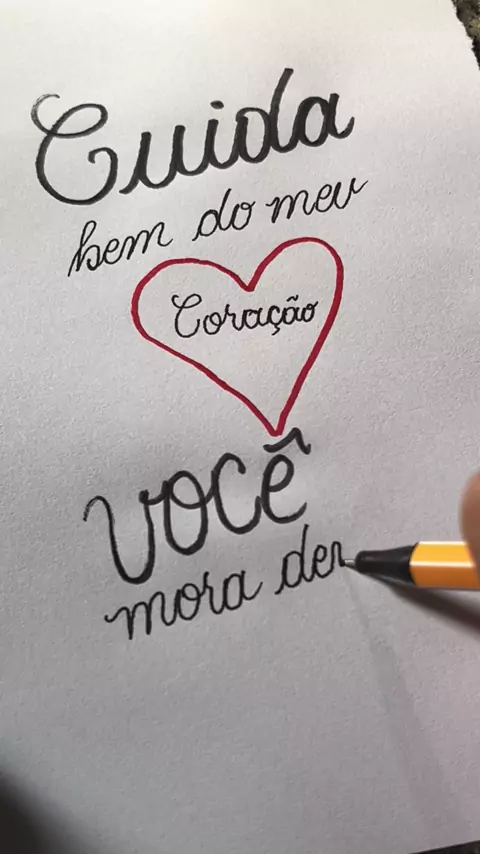 Cuida
bem do meu
Coração
VOCÊ
mora den